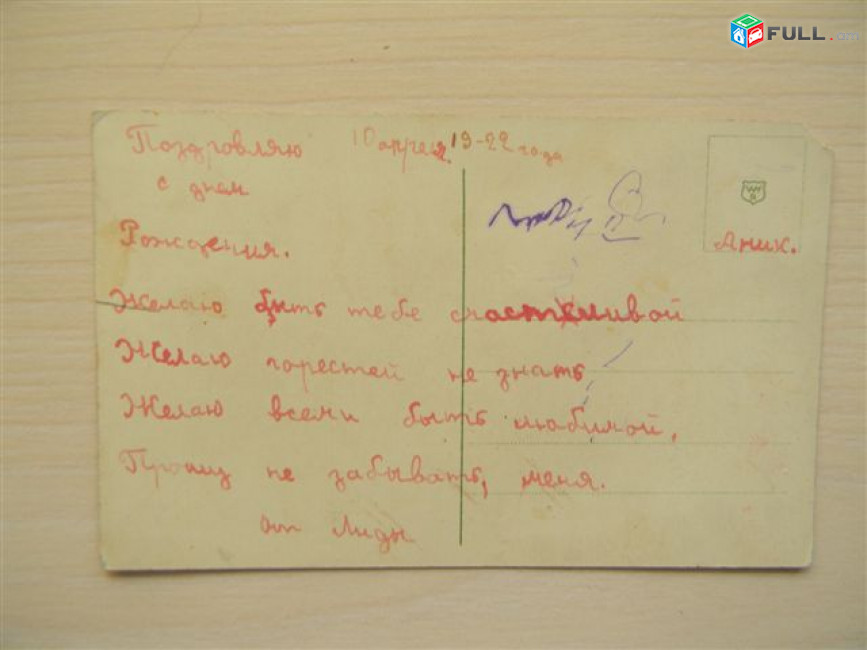 FULL.am
Поздровляю 10 апреля 19-22 года
с днем
Аник.
Рождения.
Желаю быть тебе счастливой
Желаю горестей не знать
Желаю всеми быть любимой,
Прошу не забывать, меня.
От Лиды